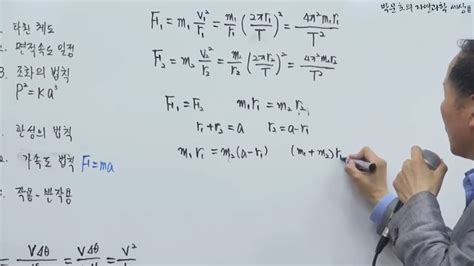 박문호의 자연과학 세상
1. 타원 궤도
2. 면적속도 일정
3. 조화의 법칙
P² = Ka³
1. 관성의 법칙
2. 가속도 법칙 F=ma
3. 작용-반작용
F₁ = m₁ v₁²/r₁ = m₁/r₁ (2πr₁/T)² = 4π²m₁r₁/T²
F₂ = m₂ v₂²/r₂ = m₂/r₂ (2πr₂/T)² = 4π²m₂r₂/T²
F₁ = F₂ m₁r₁ = m₂r₂
r₁+r₂ = a r₂ = a-r₁
m₁r₁ = m₂(a-r₁) (m₁+m₂)r₁
= VΔθ = VΔθ = V²